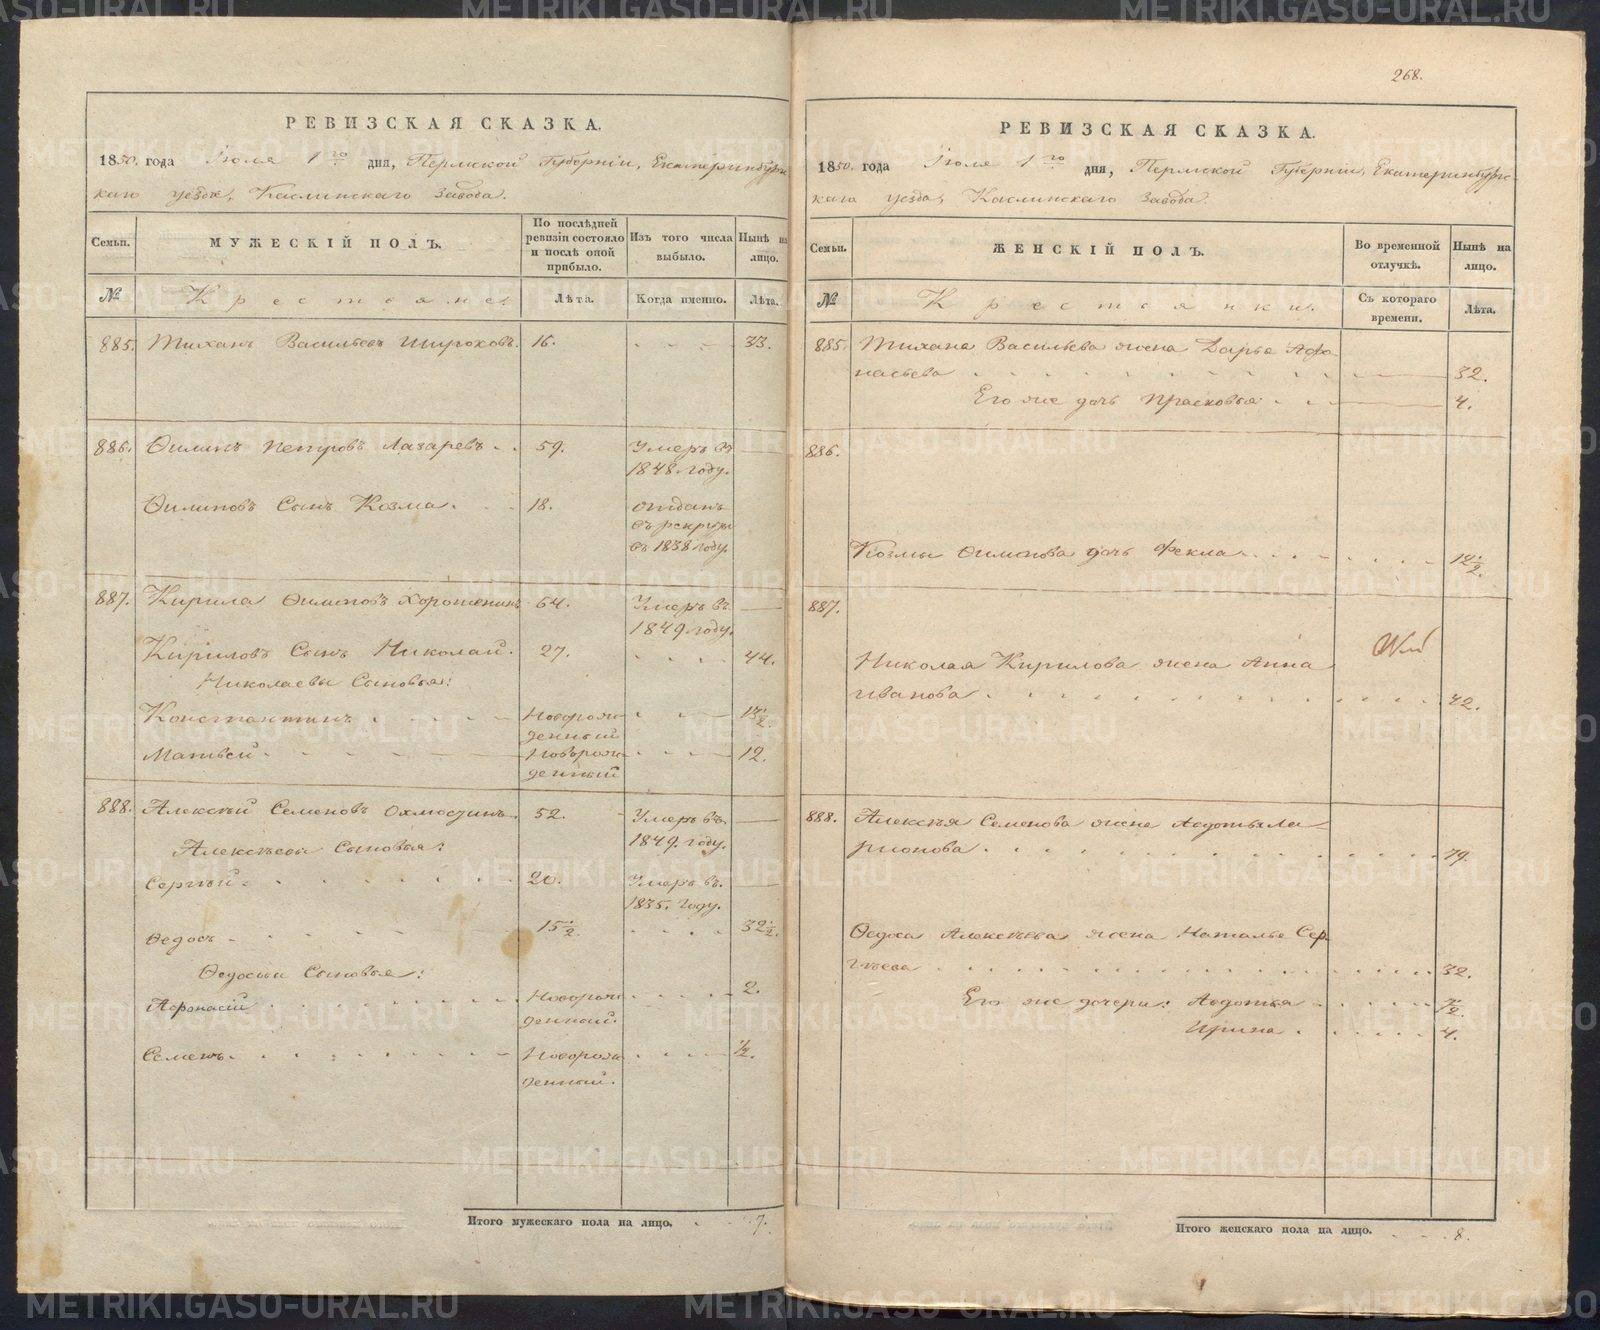 РЕВИЗСКАЯ СКАЗКА.
1850. года Іюля 1го дня, Пермской Губерніи, Екатеринбургс-
каго уезда, Каслинскаго Завода.
Семьи. МУЖЕСКІЙ ПОЛЪ. По послѣдней ревизіи состояло и послѣ оной прибыло. Изъ того числа выбыло. Нынѣ на лицо.
№ Крестьяне: Лѣта. Когда именно. Лѣта.
885. Тихонъ Васильевъ Широковъ. 16. 33.
886. Филипъ Петровъ Лазаревъ 59. Умеръ въ
1848 году.
Филиповъ Сынъ Козма. 18. отданъ
въ рекруты
въ 1838 году.
887. Кирила Филиповъ Хорошенинъ 64. Умеръ въ
1849 году.
Кириловъ Сынъ Николай. 27. 44.
Николаевы Сыновья:
Константинъ Новорож-
денный 13 1/2.
Матвей Новорож-
денный 12.
888. Алексѣй Семеновъ Охлюстинъ 52. Умеръ въ
1849. году.
Алексѣевы Сыновья:
Сергѣй 20. Умеръ въ.
1835. году.
Ѳедосъ 15 1/2. 32 1/2.
Ѳедосьи Сыновья:
Афонасій Новорож-
денный. 2.
Семенъ. Новорож-
денный. 1/2.
Итого мужескаго пола на лицо. 7.
268.
РЕВИЗСКАЯ СКАЗКА.
1850. года Іюля 1го дня, Пермской Губерніи, Екатеринбургс-
каго уезда, Каслинскаго Завода.
Семьи. ЖЕНСКІЙ ПОЛЪ. Во временной отлучкѣ. Нынѣ на лицо.
№ Крестьянки. Съ котораго времени. Лѣта.
885. Тихона Васильева жена Дарья Афо-
насьева 32.
Его же дочь Прасковья 4.
886.
Козмы Филипова дочь Фекла 12 1/2.
887.
Николая Кирилова жена Анна
Иванова 42.
888. Алексѣя Семенова жена Авдотья Ла-
рионова. 79.
Ѳедоса Алексѣева жена Наталья Сер-
гѣева 32.
Его же дочери: Авдотья 7 1/2.
Ирина. 4.
Итого женскаго пола на лицо. 8.
METRIKI.GASO-URAL.RU